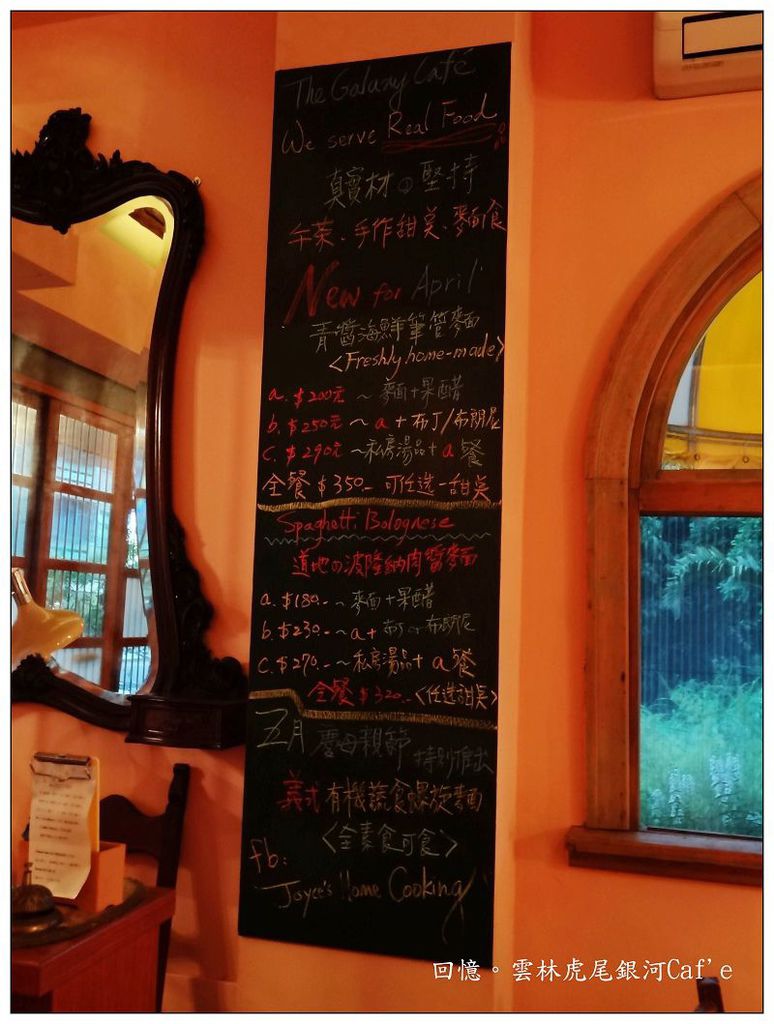 The Galaxy Café
We serve Real Food
真實材の堅持
午茶、手作甜点、麥面食
New for April
青醬海鮮筆管麵
<Freshly home-made>
a. $200元 ~ 麥面+果醋
b. $250元 ~ a + 布丁/布朗尼
c. $290元 ~私房湯品+ a 餐
全餐 $350- 可任選一甜点
Spaghetti Bolognese
道地の波隆納肉醬麥面
a. $180.- ~ 麥面+果醋
b. $230- ~ a + 布丁 or 布朗尼
c. $270.- ~私房湯品+ a 餐
全餐 $320- <任選甜点>
五月 慶母親節 特別推出
義式有機蔬食螺旋麥面
<全素食可食>
fb:
Joyce's Home Cooking
回憶。雲林虎尾銀河Caf'e